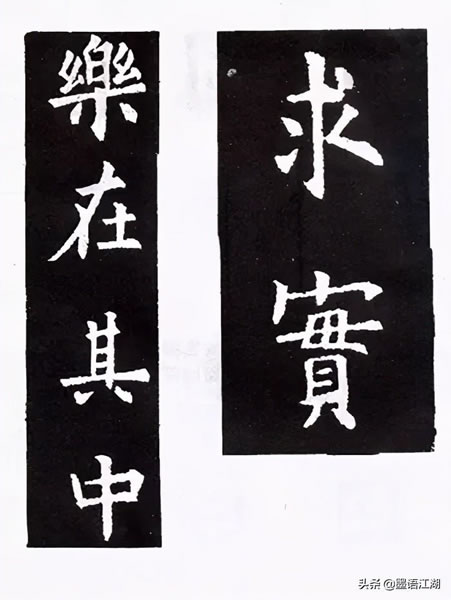 求實
樂在其中
头条 @墨语江湖